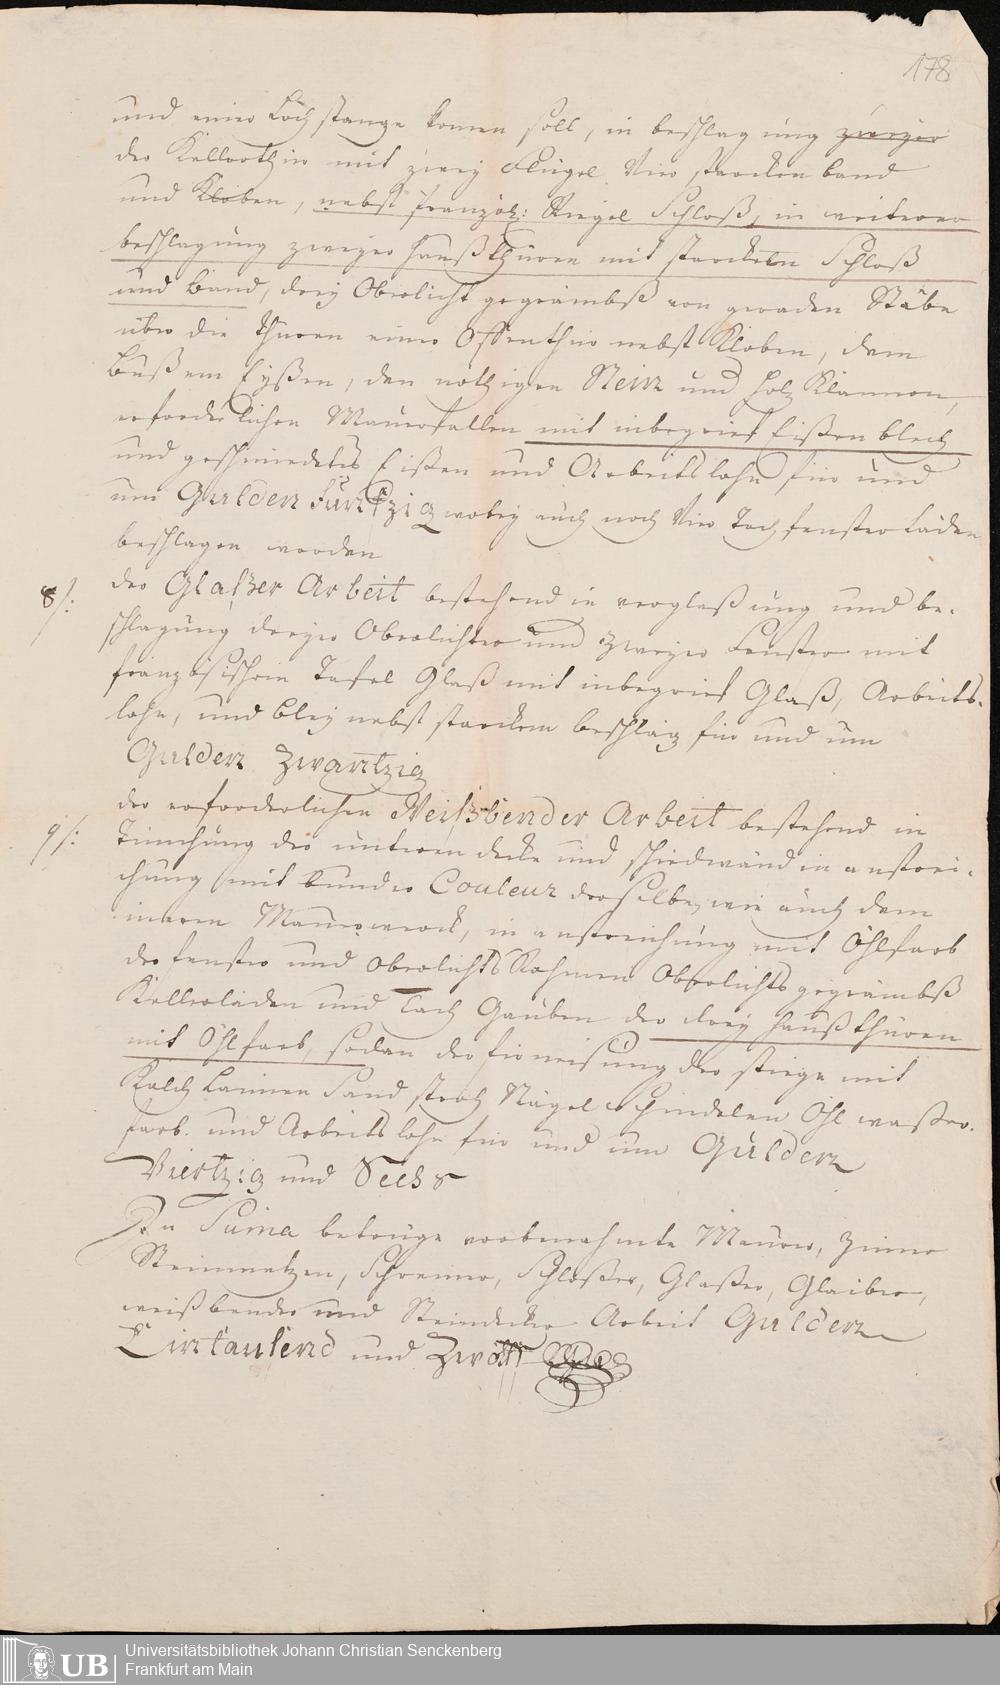 178
und einer Loch stange komen soll, in beschlagung zweyer
der Kellerthür mit zwey Flügel Vier starcken band
und Kloben, nebst französ: Riegel Schloß, in weiterer
beschlagung zweyer haußthüren mit starcken Schloß
und Band, drey Oberlicht gegrämbß von geraden Stäbe
über die Thüren einer Offenthür nebst Kloben, dem
Bußem Eyßen, den nöthigen Stein und holz Klamern,
erforderlichen Mauerfallen mit inbegrief Eißen blech
und geschmiedetes Eißen und Arbeitslohn für und
um Gulden Funfzig wobey auch noch Vier Tachfenster Läden
beschlagen werden
8/: der Glaßer Arbeit bestehend in verglaßung und be-
schlagung dreyer Oberlichter und zweyer Fenster mit
französischem Tafel Glaß mit inbegrief Glaß, Arbeits-
lohn, und bley nebst starckem beschläg für und um
Gulden Zwantzig
9/: der erforderlichen Weißbender Arbeit bestehend in
Tünchung der unteren decke und schiedwänd in anstrei-
chung mit bunder Couleur derselben, wie auch dem
inneren Mauerwerck, in anstreichung mit Öhlfarb
der fenster und oberlichts Rahmen Oberlichts gegrämbß
Kellerläden und Tach Gauben der drey haußthüren
mit Öhlfarb, sodan der firneisung der stiege mit
Kalch Laimen Sand stroh Nägel Schindelen Öhl waßer-
farb. und Arbeitslohn für und um Gulden
Viertzig und Sechs
In Suma betrüge vorbenahmte Maurer, Zimer
Steinmetzen, Schreiner, Schloßer, Glaßer, Glaiber,
weißbender und Steindecker Arbeit Gulden
Eintausend und Zwölff
UB
Universitätsbibliothek Johann Christian Senckenberg
Frankfurt am Main